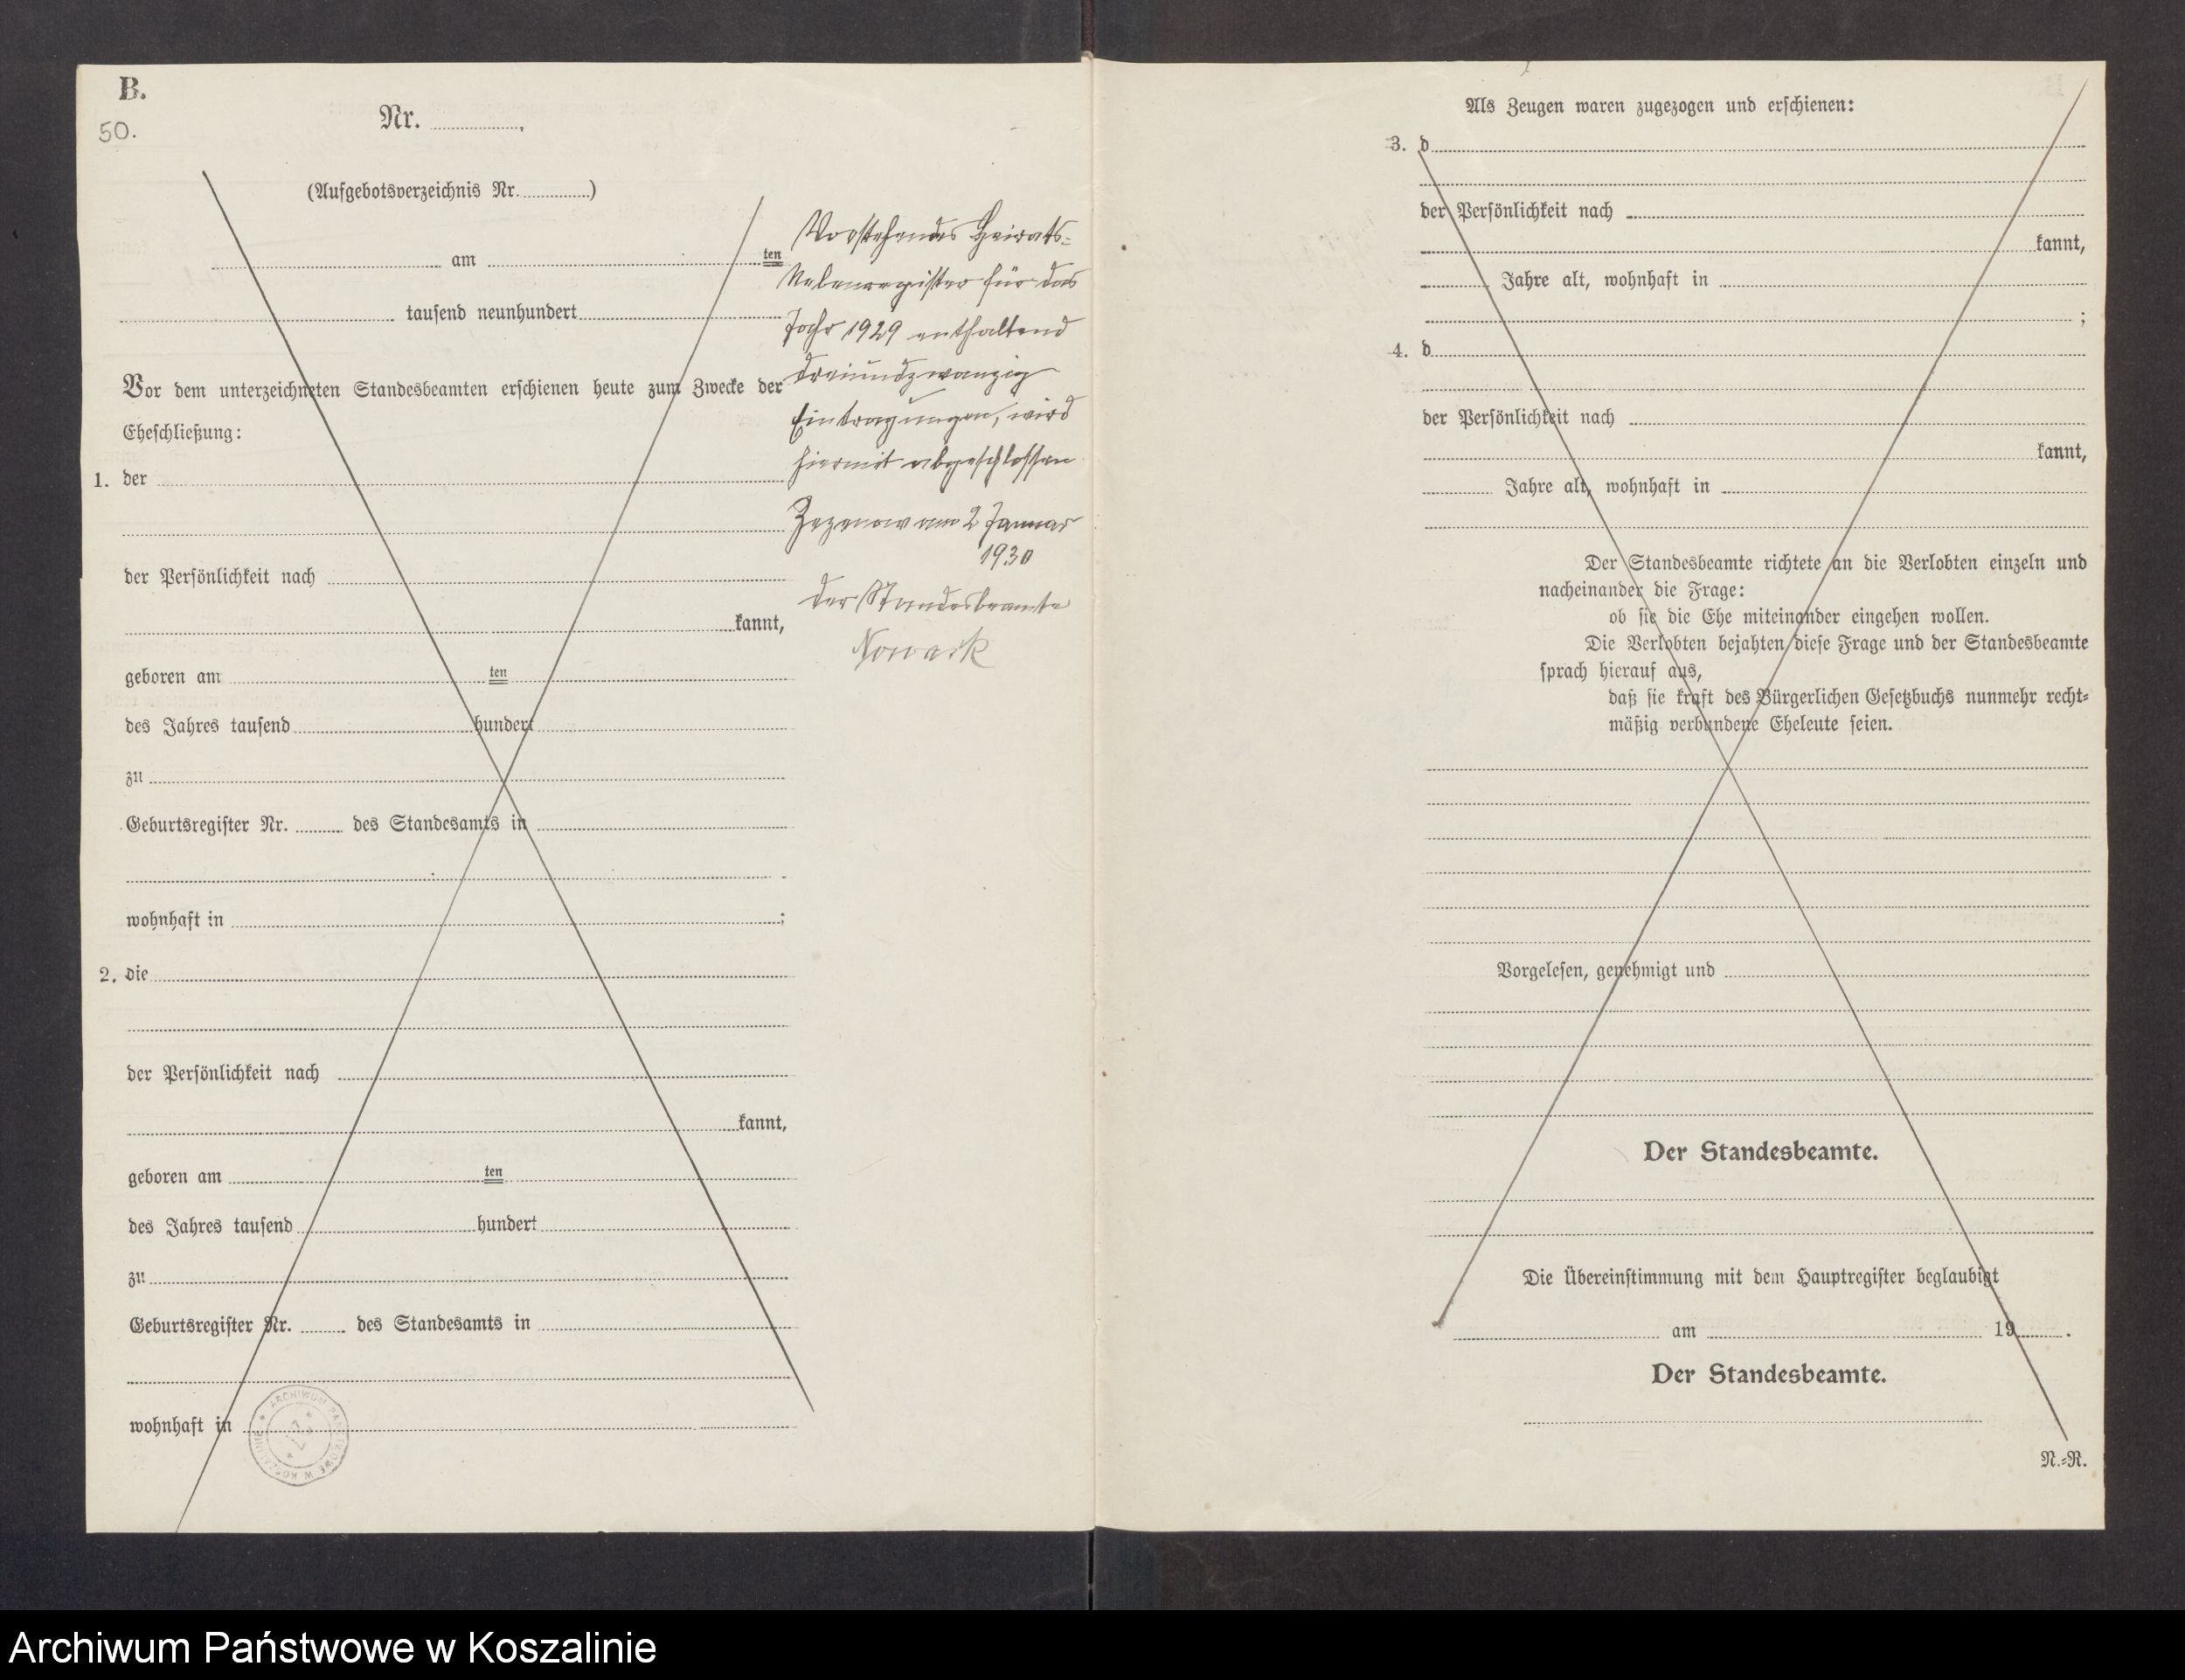 B.
50.
Nr. ............
(Aufgebotsverzeichnis Nr. ............)
............ am ............ ten
............ tausend neunhundert ............
Vor dem unterzeichneten Standesbeamten erschienen heute zum Zwecke der
Eheschließung:
1. der ............
der Persönlichkeit nach ............
............ kannt,
geboren am ............ ten ............
des Jahres tausend ............ hundert ............
zu ............
Geburtsregister Nr. ......... des Standesamts in ............
wohnhaft in ............ ;
2. die ............
der Persönlichkeit nach ............
............ kannt,
geboren am ............ ten ............
des Jahres tausend ............ hundert ............
zu ............
Geburtsregister Nr. ......... des Standesamts in ............
wohnhaft in ............
ARCHIWUM PAŃSTWOWE W KOSZALINIE
Vorstehendes Heirats-
Nebenregister für das
Jahr 1929 enthaltend
dreiundzwanzig
Eintragungen, wird
hiermit abgeschlossen
Zezenow am 2 Januar
1930
der Standesbeamte
Nowack
Als Zeugen waren zugezogen und erschienen:
3. d ............
der Persönlichkeit nach ............
............ kannt,
............ Jahre alt, wohnhaft in ............
............ ;
4. d ............
der Persönlichkeit nach ............
............ kannt,
............ Jahre alt, wohnhaft in ............
Der Standesbeamte richtete an die Verlobten einzeln und
nacheinander die Frage:
ob sie die Ehe miteinander eingehen wollen.
Die Verlobten bejahten diese Frage und der Standesbeamte
sprach hierauf aus,
daß sie kraft des Bürgerlichen Gesetzbuchs nunmehr recht-
mäßig verbundene Eheleute seien.
Vorgelesen, genehmigt und ............
Der Standesbeamte.
Die Übereinstimmung mit dem Hauptregister beglaubigt
............ am ............ 19 ......... .
Der Standesbeamte.
N.-R.
Archiwum Państwowe w Koszalinie